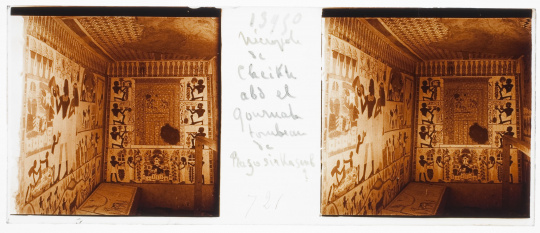 13950
Nécropole
de
Cheikh
abd el
gournah
tombeau
de
?
731